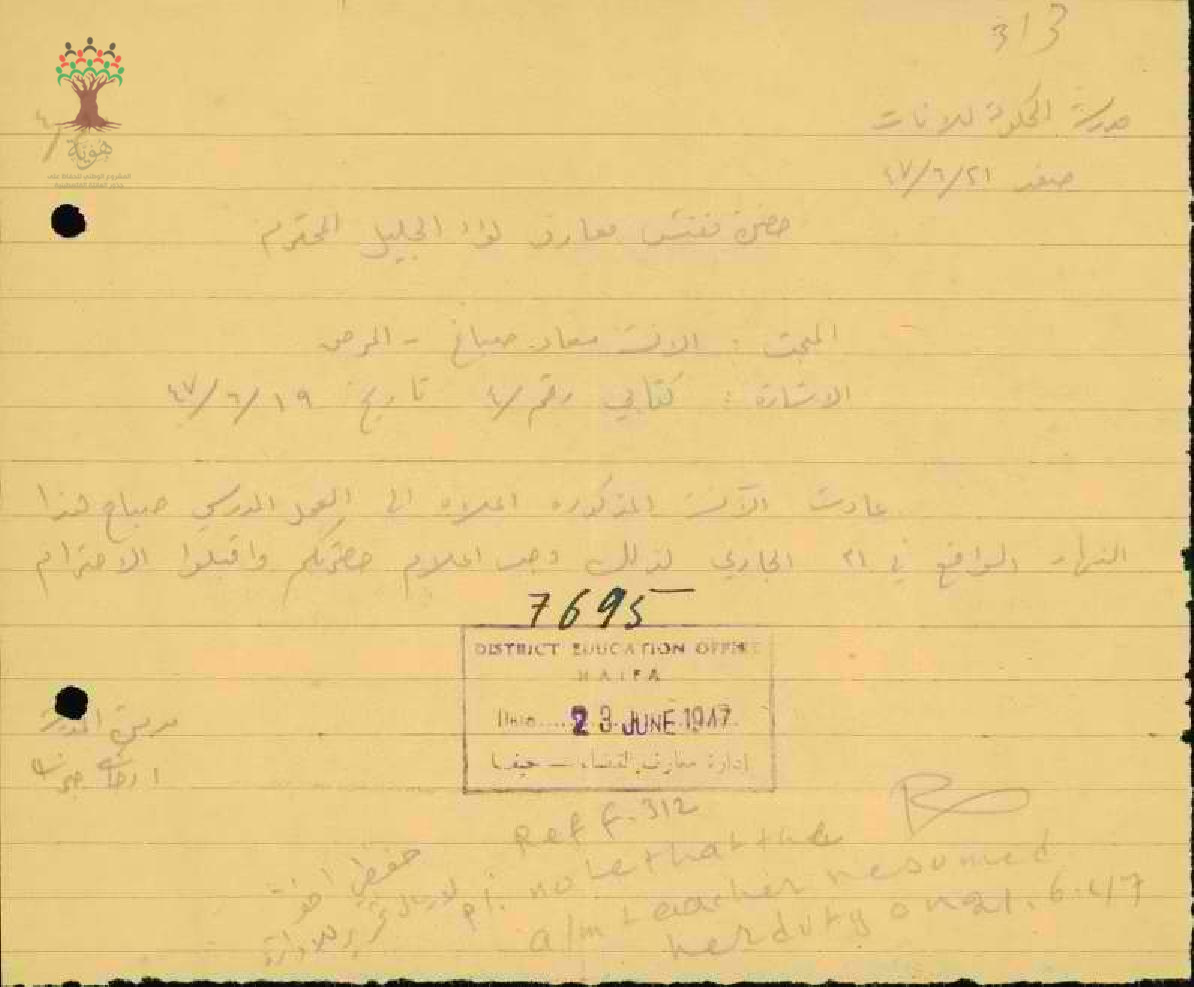 313
مدرسة الحكومة للاناث
صفد ٢١/٦/٤٧
هوية
٤/
حضرة مفتش معارف لواء الجليل المحترم
المبحث : الانسة سعاد صباغ - المرض
الاشارة : كتابي رقم ٤/ تاريخ ١٩/٦/٤٧
عادت الآنسة المذكوره اعلاه الى العمل المدرسي صباح هذا
النهار الواقع في ٢١ الجاري لذلك وجب اعلام حضرتكم واقبلوا الاحترام
7695
DISTRICT EDUCATION OFFICE
HAIFA
Date..... 23 JUNE 1947.
إدارة معارف القضاء — حيفا
مديرة المدرسة
Ref f. 312
p1. note that the
a/m teacher resumed
her duty on 21.6.47